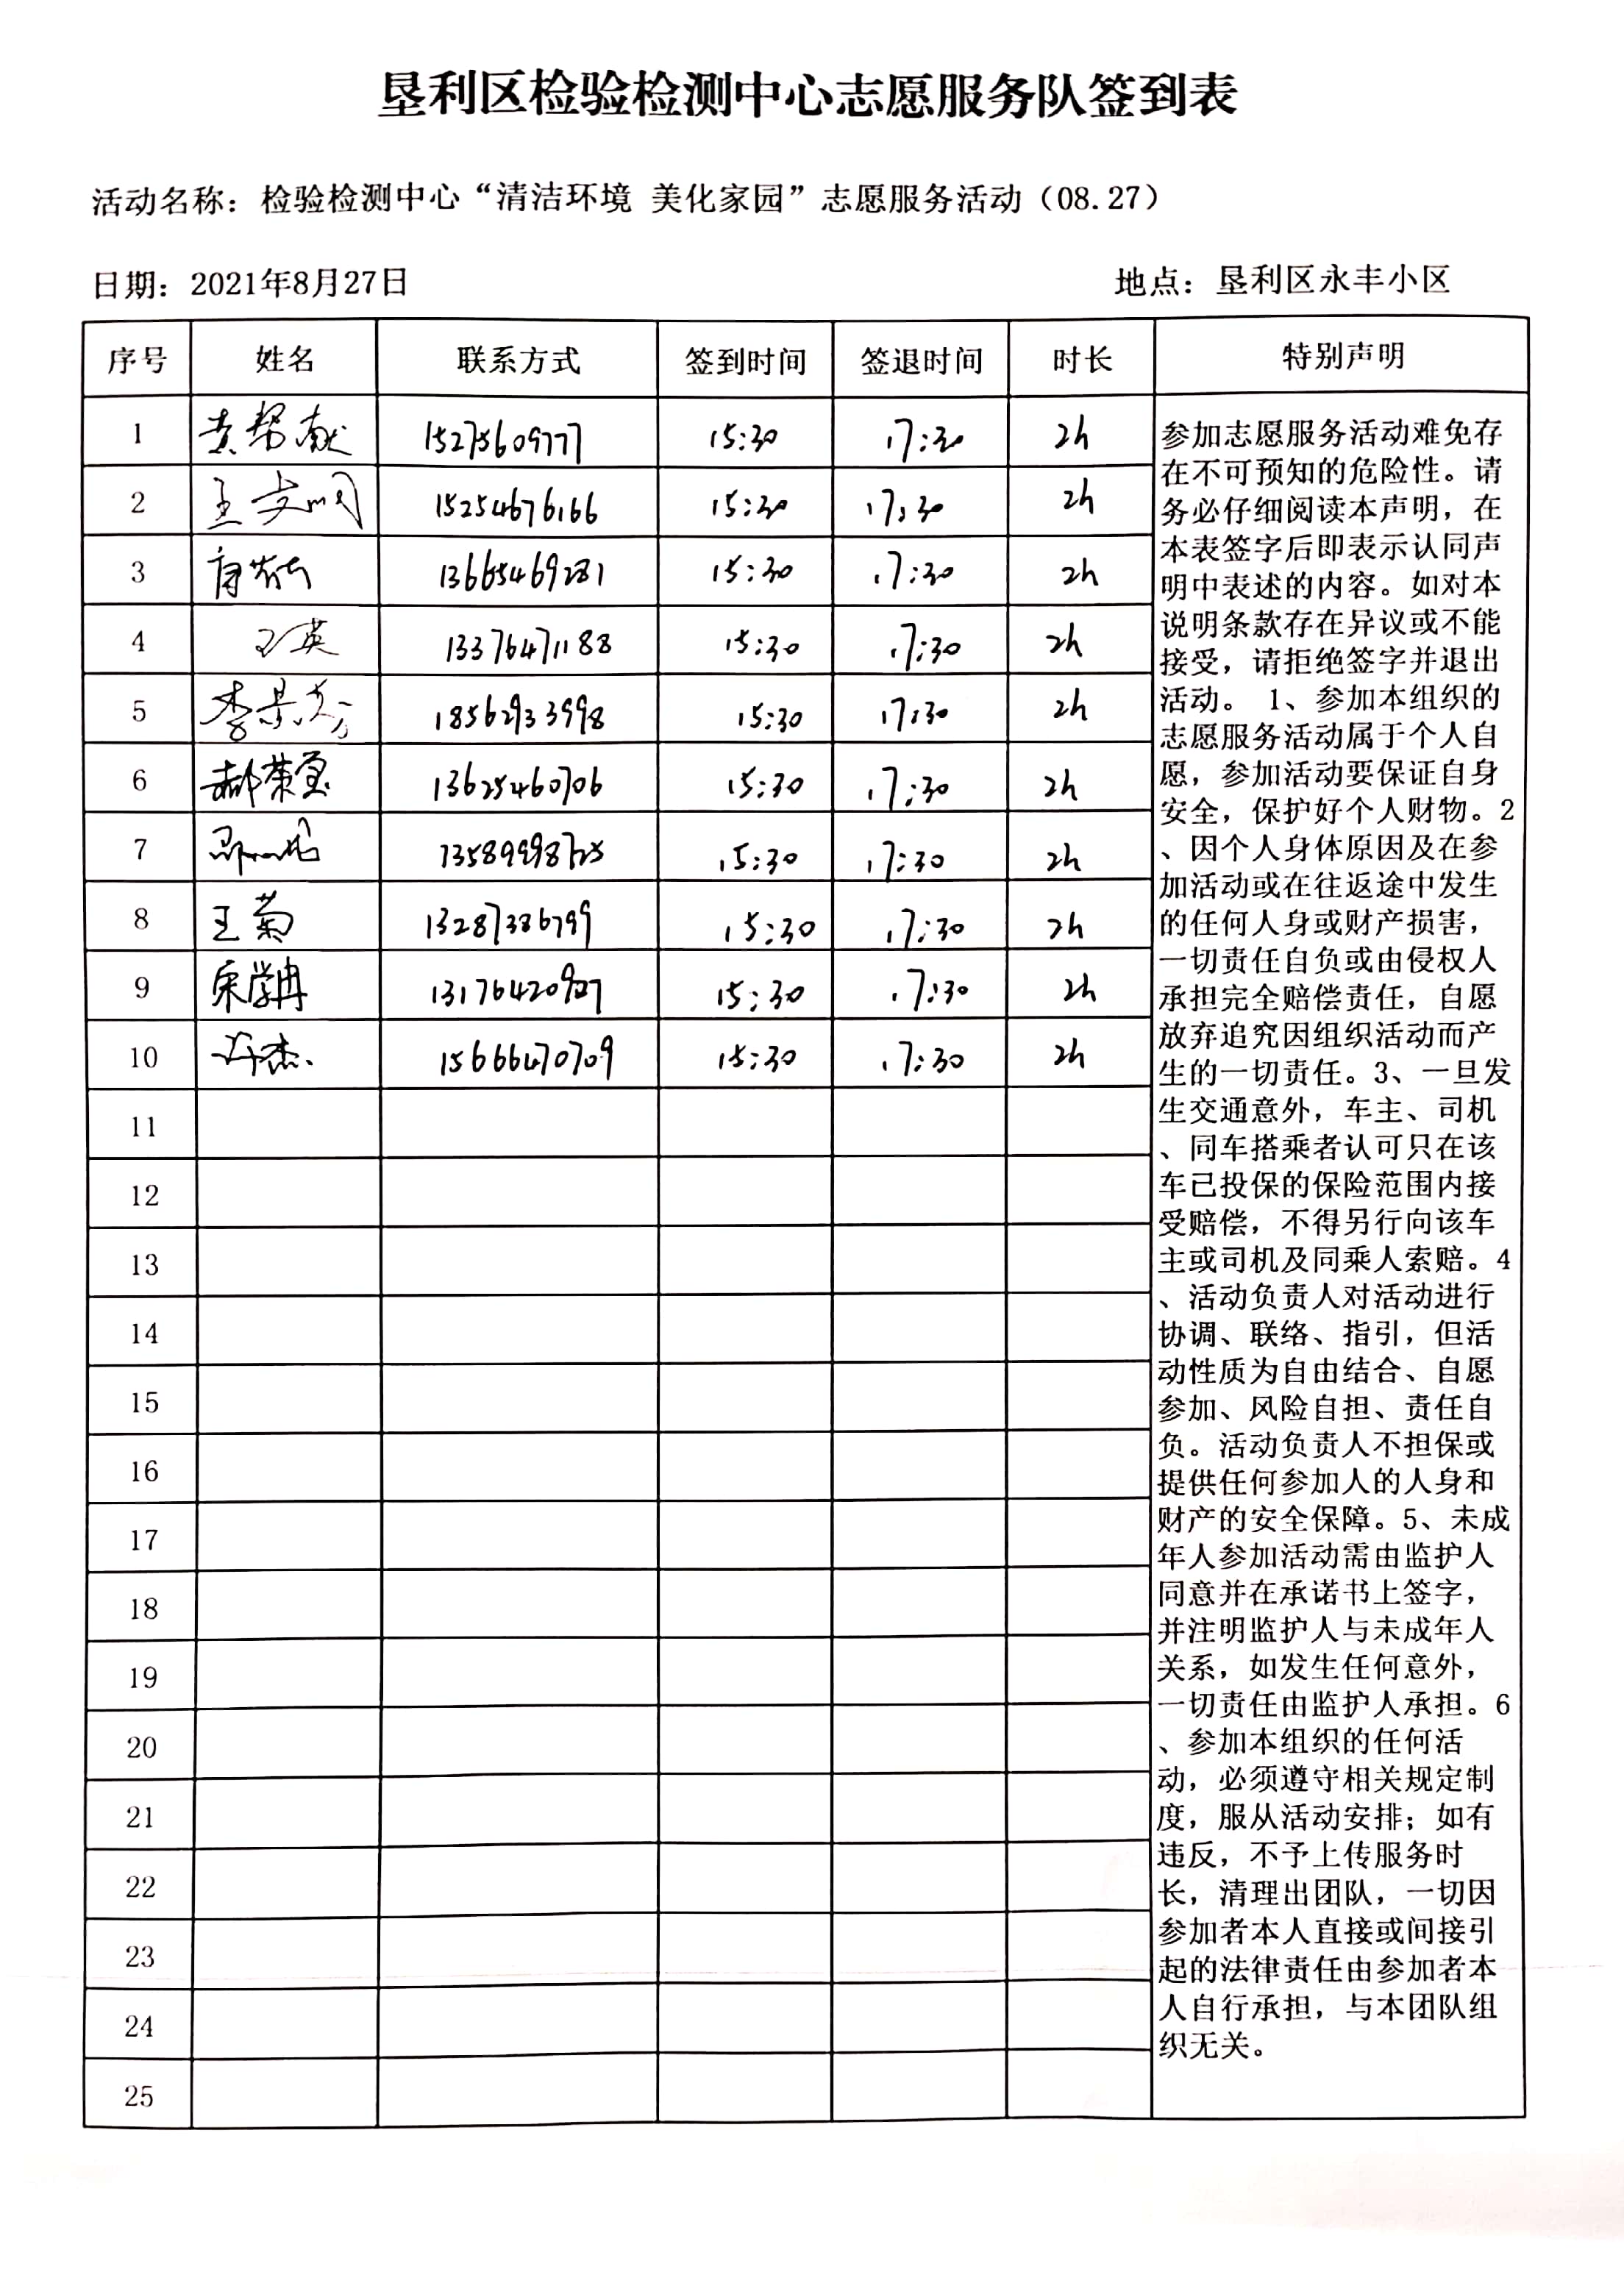 垦利区检验检测中心志愿服务队签到表
活动名称：检验检测中心“清洁环境 美化家园”志愿服务活动（08.27）
日期：2021年8月27日 地点：垦利区永丰小区
序号 姓名 联系方式 签到时间 签退时间 时长 特别声明
1 黄帮献 15275609777 15:30 17:30 2h
2 王 15254676166 15:30 17:30 2h
3 13665469281 15:30 17:30 2h
4 王英 13376471188 15:30 17:30 2h
5 李景芳 18562933998 15:30 17:30 2h
6 郝荣莹 13625460706 15:30 17:30 2h
7 15:30 17:30 2h
8 王菊 13287386799 15:30 17:30 2h
9 宋学冉 13176420927 15:30 17:30 2h
10 杰 15666470709 15:30 17:30 2h
11
12
13
14
15
16
17
18
19
20
21
22
23
24
25
参加志愿服务活动难免存
在不可预知的危险性。请
务必仔细阅读本声明，在
本表签字后即表示认同声
明中表述的内容。如对本
说明条款存在异议或不能
接受，请拒绝签字并退出
活动。 1、参加本组织的
志愿服务活动属于个人自
愿，参加活动要保证自身
安全，保护好个人财物。2
、因个人身体原因及在参
加活动或在往返途中发生
的任何人身或财产损害，
一切责任自负或由侵权人
承担完全赔偿责任，自愿
放弃追究因组织活动而产
生的一切责任。3、一旦发
生交通意外，车主、司机
、同车搭乘者认可只在该
车已投保的保险范围内接
受赔偿，不得另行向该车
主或司机及同乘人索赔。4
、活动负责人对活动进行
协调、联络、指引，但活
动性质为自由结合、自愿
参加、风险自担、责任自
负。活动负责人不担保或
提供任何参加人的人身和
财产的安全保障。5、未成
年人参加活动需由监护人
同意并在承诺书上签字，
并注明监护人与未成年人
关系，如发生任何意外，
一切责任由监护人承担。6
、参加本组织的任何活
动，必须遵守相关规定制
度，服从活动安排；如有
违反，不予上传服务时
长，清理出团队，一切因
参加者本人直接或间接引
起的法律责任由参加者本
人自行承担，与本团队组
织无关。